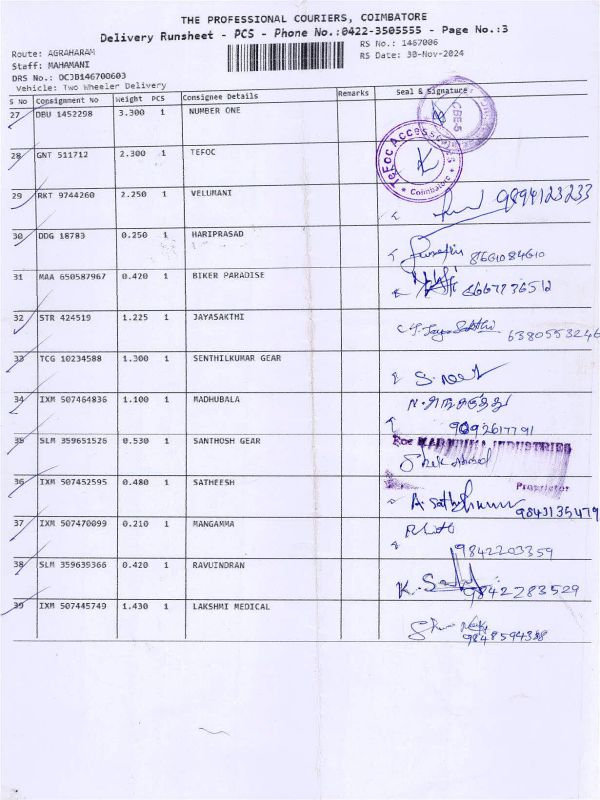 THE PROFESSIONAL COURIERS, COIMBATORE
Delivery Runsheet - PCS - Phone No.:0422-3505555 - Page No.:3
Route: AGRAHARAM
RS No.: 1467006
Staff: MAHAMANI
RS Date: 30-Nov-2024
DRS No.: OCJB146700603
Vehicle: Two Wheeler Delivery
S No Consignment No Weight PCS Consignee Details Remarks Seal & Signature
27 DBU 1452298 3.300 1 NUMBER ONE
CBE-5
28 GNT 511712 2.300 1 TEFOC
TeFoc Accessories
Coimbatore
29 RKT 9744260 2.250 1 VELUMANI 9894123233
30 DDG 18783 0.250 1 HARIPRASAD 8661084610
31 MAA 650587967 0.420 1 BIKER PARADISE 8667736512
32 STR 424519 1.225 1 JAYASAKTHI 6380553246
33 TCG 10234588 1.300 1 SENTHILKUMAR GEAR
34 IXM 507464836 1.100 1 MADHUBALA
9092617791
35 SLM 359651526 0.530 1 SANTHOSH GEAR
For INDUSTRIES
Proprietor
36 IXM 507452595 0.480 1 SATHEESH A. Sathishkumar
9843135479
37 IXM 507470099 0.210 1 MANGAMMA
9842203359
38 SLM 359639366 0.420 1 RAVUINDRAN
9842283529
39 IXM 507445749 1.430 1 LAKSHMI MEDICAL